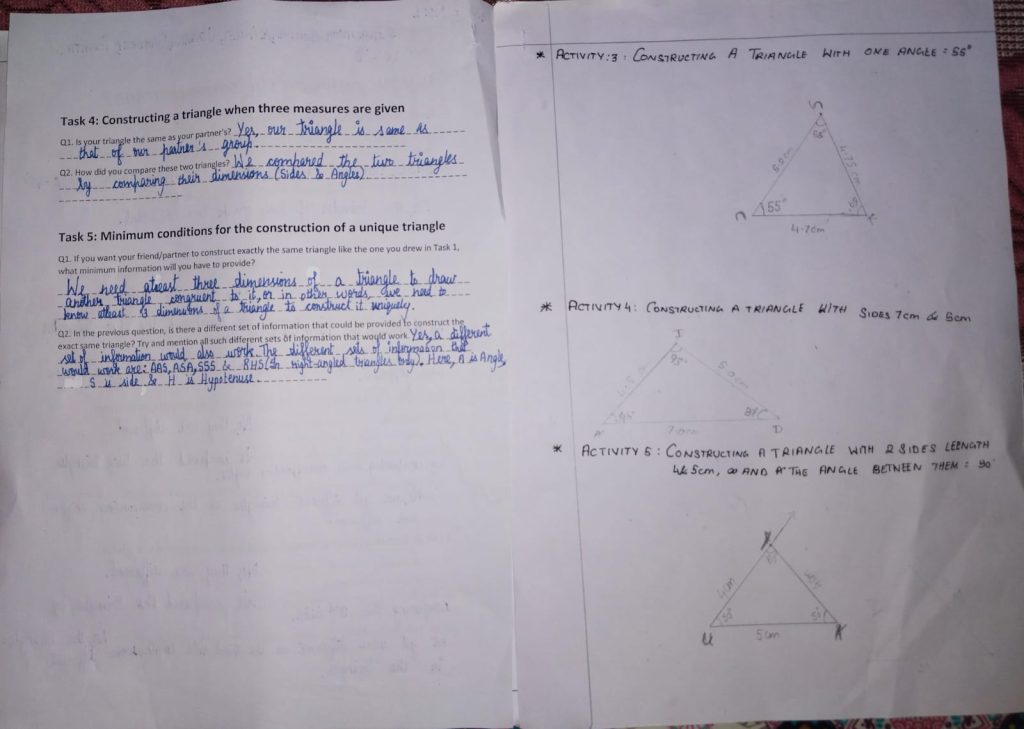 Task 4: Constructing a triangle when three measures are given
Q1. Is your triangle the same as your partner's? Yes, our triangle is same as
that of our partner's group.
Q2. How did you compare these two triangles? We compared the two triangles
by comparing their dimensions (Sides & Angles)
Task 5: Minimum conditions for the construction of a unique triangle
Q1. If you want your friend/partner to construct exactly the same triangle like the one you drew in Task 1,
what minimum information will you have to provide?
We need atleast three dimensions of a triangle to draw
another triangle, congruent to it, or in other words, we need to
know atleast 3 dimensions of a triangle to construct it uniquely.
Q2. In the previous question, is there a different set of information that could be provided to construct the
exact same triangle? Try and mention all such different sets of information that would work Yes, a different
set of information would also work. The different sets of information that
would work are: AAS, ASA, SSS & RHS (In right-angled triangles only). Here, A is Angle,
S is side & H is Hypotenuse.
* ACTIVITY:3: CONSTRUCTING A TRIANGLE WITH ONE ANGLE = 55°
S
4.75 cm
55°
4.7cm
* ACTIVITY 4: CONSTRUCTING A TRIANGLE WITH SIDES 7cm & 5cm
I
5.0cm
7.0cm
A
D
* ACTIVITY 5: CONSTRUCTING A TRIANGLE WITH 2 SIDES LEENGTH
4& 5cm, AND THE ANGLE BETWEEN THEM = 90°
4cm
55°
U
5cm
K